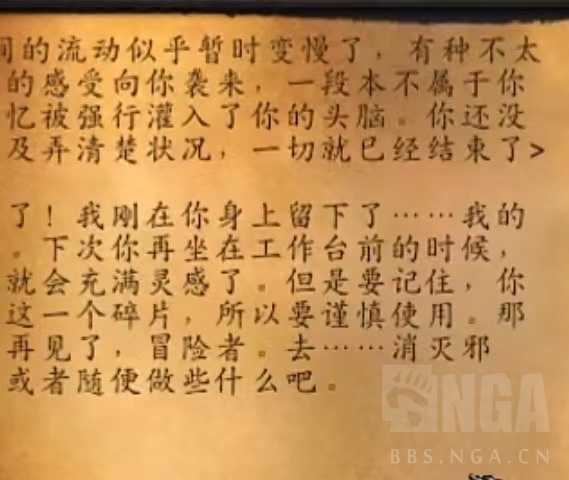 间的流动似乎暂时变慢了，有种不太
的感受向你袭来，一段本不属于你
忆被强行灌入了你的头脑。你还没
及弄清楚状况，一切就已经结束了>
了！我刚在你身上留下了……我的
。下次你再坐在工作台前的时候，
就会充满灵感了。但是要记住，你
这一个碎片，所以要谨慎使用。那
再见了，冒险者。去……消灭邪
或者随便做些什么吧。
NGA
BBS.NGA.CN